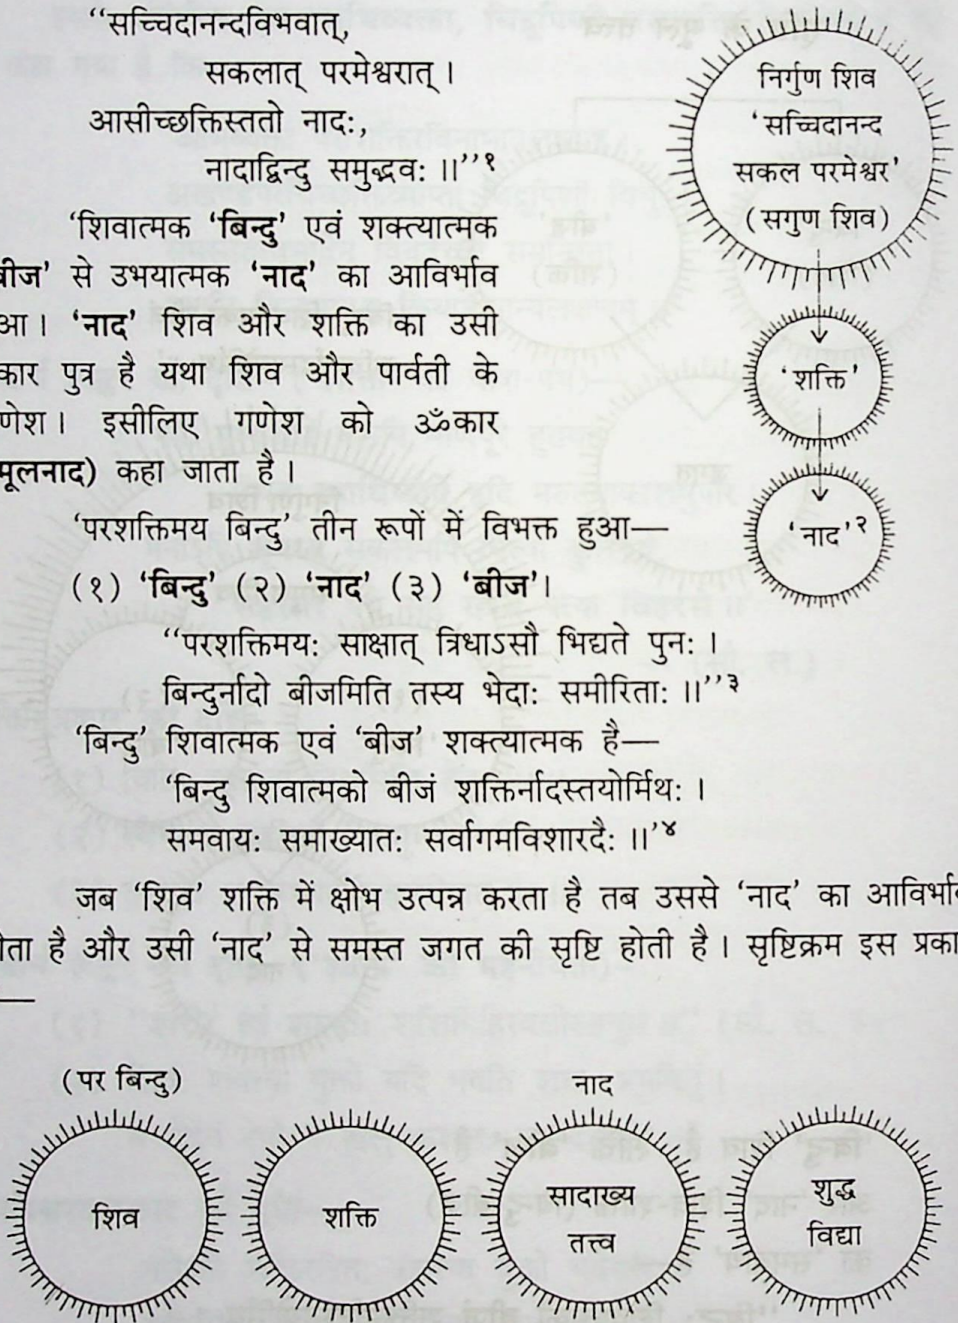 “सच्चिदानन्दविभवात्,
सकलात् परमेश्वरात् ।
आसीच्छक्तिस्ततो नादः,
नादाद्विन्दु समुद्भवः ।।’’१
‘शिवात्मक ‘बिन्दु’ एवं शक्त्यात्मक
बीज’ से उभयात्मक ‘नाद’ का आविर्भाव
आ। ‘नाद’ शिव और शक्ति का उसी
कार पुत्र है यथा शिव और पार्वती के
णेश। इसीलिए गणेश को ॐकार
मूलनाद) कहा जाता है।
निर्गुण शिव
‘सच्चिदानन्द
सकल परमेश्वर’
(सगुण शिव)
‘शक्ति’
‘नाद’२
‘परशक्तिमय बिन्दु’ तीन रूपों में विभक्त हुआ—
(१) ‘बिन्दु’ (२) ‘नाद’ (३) ‘बीज’।
“परशक्तिमयः साक्षात् त्रिधाऽसौ भिद्यते पुनः ।
बिन्दुर्नादो बीजमिति तस्य भेदाः समीरिताः ।।’’३
‘बिन्दु’ शिवात्मक एवं ‘बीज’ शक्त्यात्मक है—
‘बिन्दु शिवात्मको बीजं शक्तिर्नादस्तयोर्मिथः ।
समवायः समाख्यातः सर्वागमविशारदैः ।।’४
जब ‘शिव’ शक्ति में क्षोभ उत्पन्न करता है तब उससे ‘नाद’ का आविर्भाव
ोता है और उसी ‘नाद’ से समस्त जगत की सृष्टि होती है। सृष्टिक्रम इस प्रका
—
(पर बिन्दु)
नाद
शिव
शक्ति
सादाख्य
तत्त्व
शुद्ध
विद्या